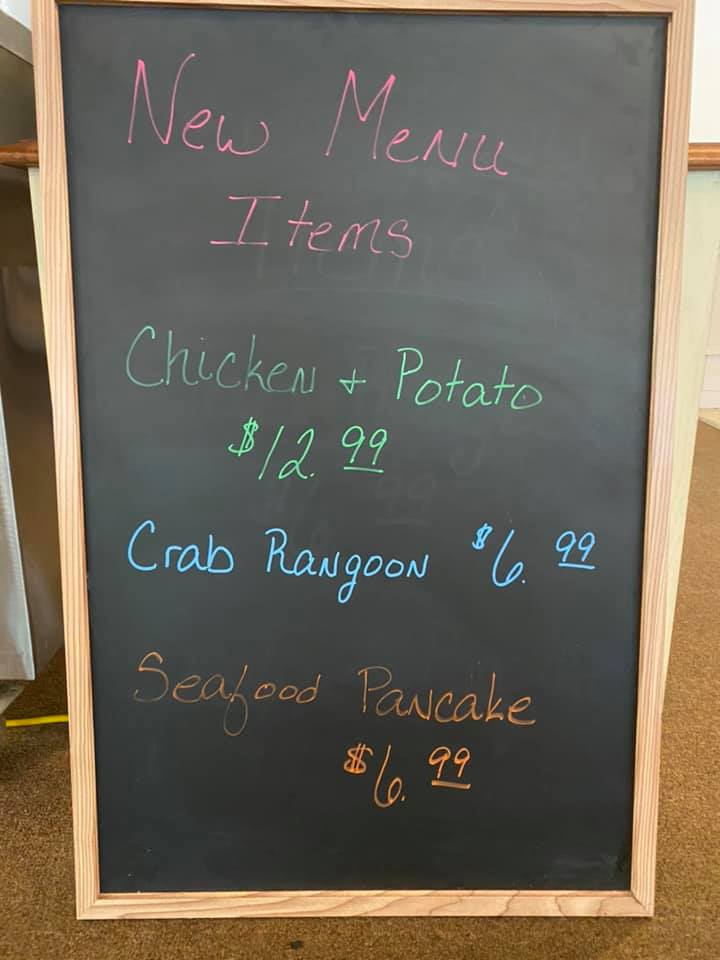 New Menu
Items
Chicken + Potato
$12.99
Crab Rangoon $6.99
Seafood Pancake
$6.99